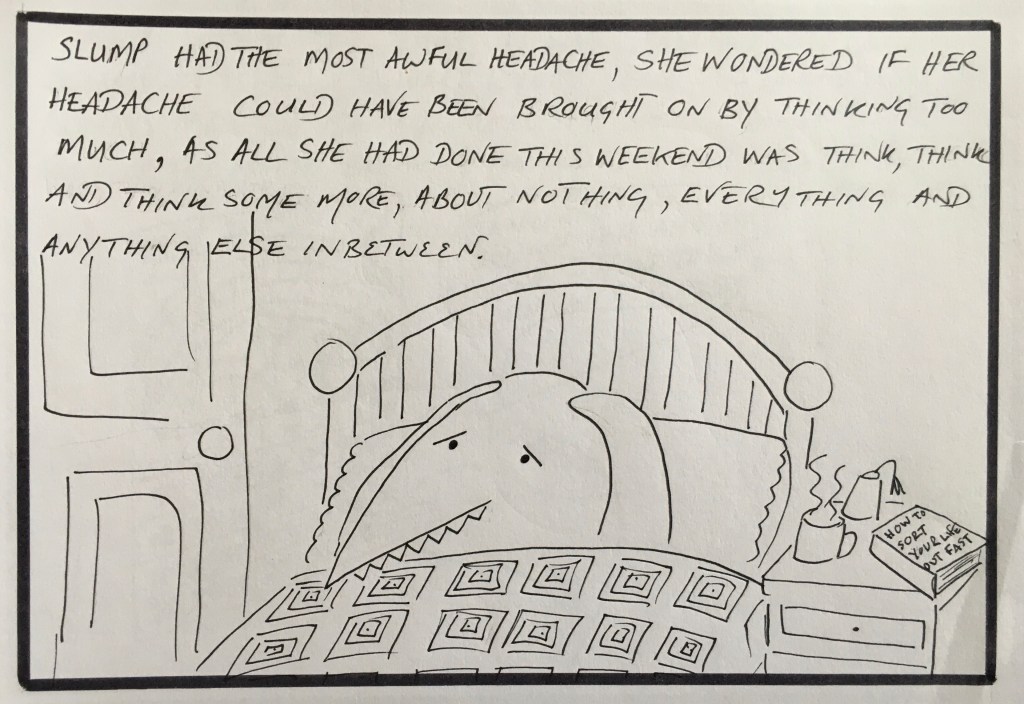 SLUMP HAD THE MOST AWFUL HEADACHE, SHE WONDERED IF HER
HEADACHE COULD HAVE BEEN BROUGHT ON BY THINKING TOO
MUCH, AS ALL SHE HAD DONE THIS WEEKEND WAS THINK, THINK
AND THINK SOME MORE, ABOUT NOTHING, EVERYTHING AND
ANYTHING ELSE INBETWEEN.
HOW TO
SORT
YOUR LIFE
OUT FAST